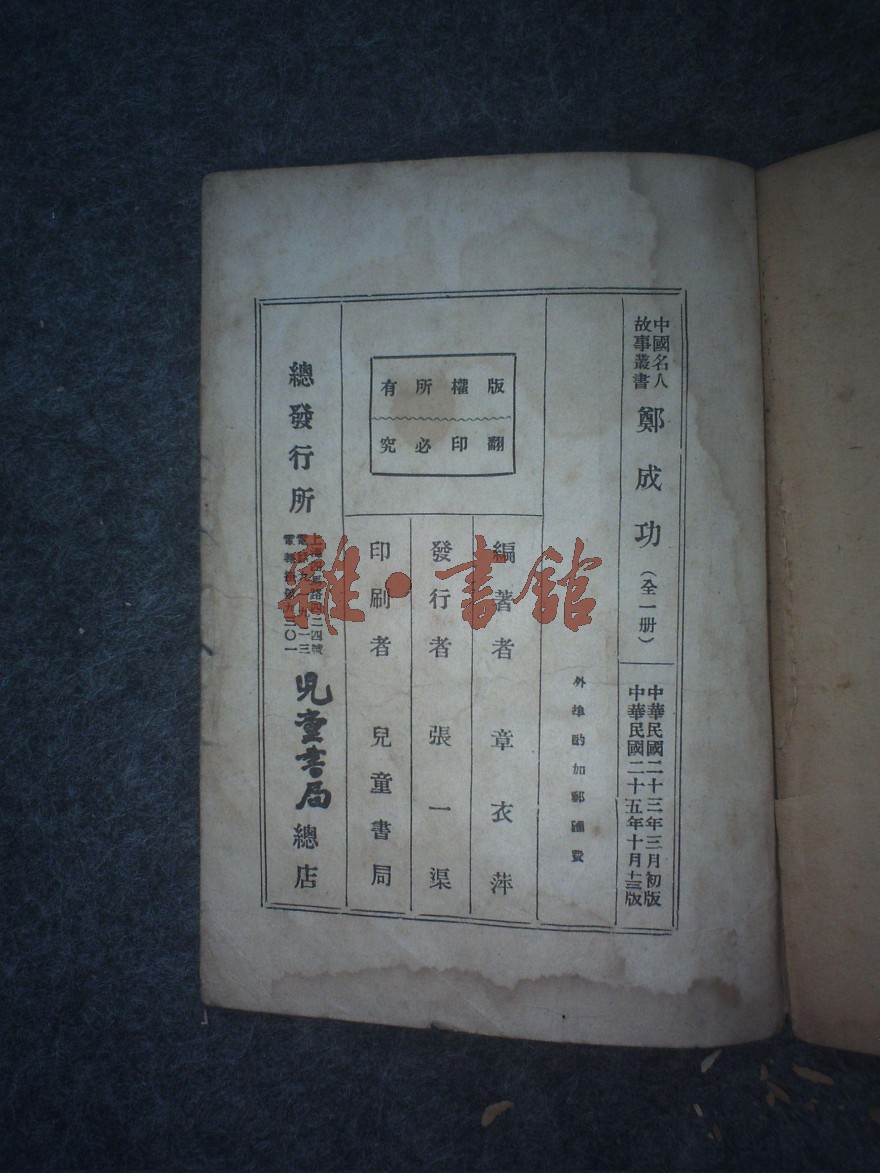 中國名人
故事叢書
鄭成功
（全一册）
中華民國二十三年三月初版
中華民國二十五年十月十三版
外埠酌加郵匯費
版權所有
翻印必究
編著者 章衣萍
發行者 張一渠
印刷者 兒童書局
總發行所
上海四馬路四二四號
兒童書局總店
雜·書館